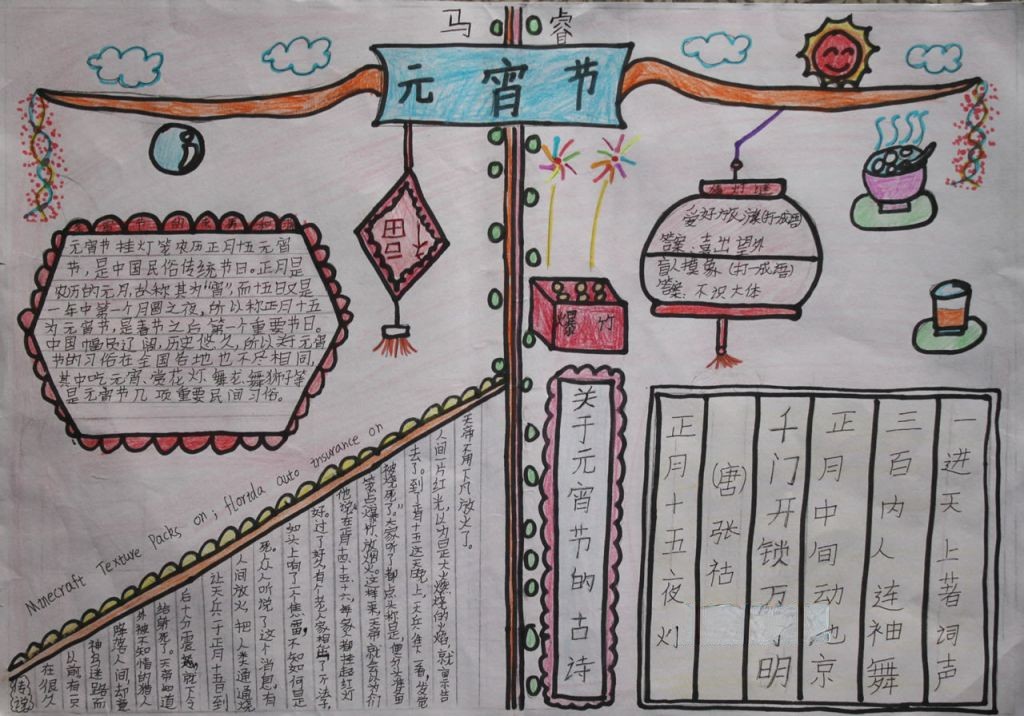 马 睿
元宵节
元宵节挂灯笼农历正月十五元宵
节,是中国民俗传统节日。正月是
农历的元月,故称其为“宵”,而十五日又是
一年中第一个月圆之夜,所以称正月十五
为元宵节,是春节之后第一个重要节日。
中国幅员辽阔,历史悠久,所以关于元宵
节的习俗在全国各地也不尽相同,
其中吃元宵、赏花灯、舞龙、舞狮子等
是元宵节几项重要民间习俗。
猜灯谜
爱好旅游(打一成语)
答案:喜出望外
盲人摸象(打一成语)
答案:不识大体
爆竹
Minecraft Texture Packs on; florida auto insurance on
传说
在很久
以前有只
神鸟迷路而
降落人间,却意
外被不知情的猎人
给射死了。天帝知道
后十分震怒,就下令
让天兵于正月十五日到
人间放火,把人类通通烧
死。众人听说了这个消息,有
如头上响了一个焦雷,不知如何是
好。过了好久,有个老人家想出了个法子,
他说“在正月十四、十五、十六,每家都挂起红灯
笼、点爆竹、放烟火。这样来,天帝就会以为人们
被烧死了。”大家听了都点头称是,便分头准备
去了。到了正月十五这天晚上,天兵往下一看,发觉
人间一片红光,以为是大火燃烧的火焰,就禀告
天帝不用下凡放火了。
关于元宵节的古诗
正月十五夜灯
(唐)张祜
千门开锁万门明
正月中间动地京
三百内人连袖舞
一进天上著词声